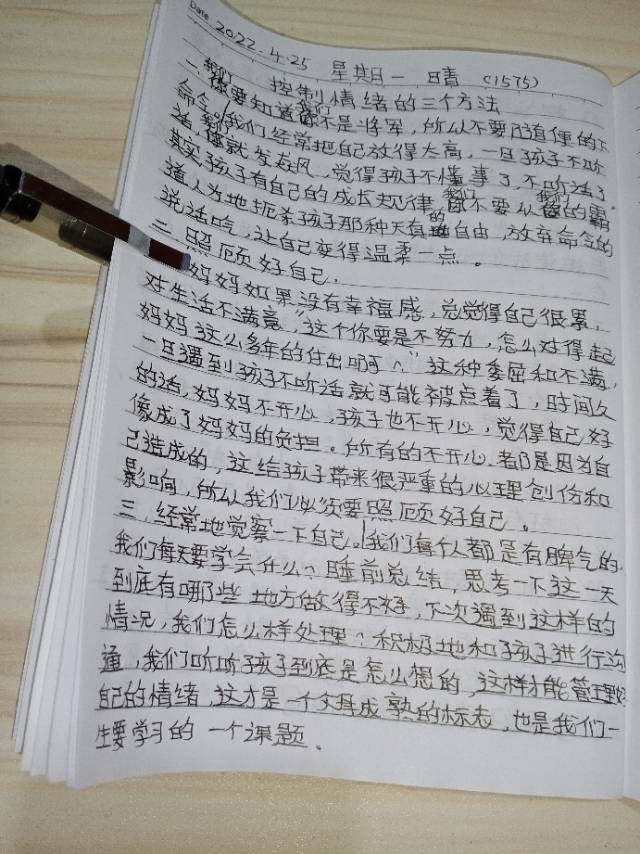 Date 2022.4.25 星期一 晴 (1575)
控制情绪的三个方法
一、我们要知道我们不是将军，所以不要随便的下
命令，我们经常把自己放得太高，一旦孩子不听
话，就发疯，觉得孩子不懂事了，不听话了，
其实孩子有自己的成长规律，我们不要从我们的霸
道人为地扼杀孩子那种天真的自由，放弃命令的
说话吻，让自己变得温柔一点。
二、照顾好自己，
妈妈如果没有幸福感，总觉得自己很累，
对生活不满意“这个你要是不努力，怎么对得起
妈妈这么多年的付出啊？”这种委屈和不满，
一旦遇到孩子不听话就可能被点着了，时间久
的话，妈妈不开心，孩子也不开心，觉得自己好
像成了妈妈的负担。所有的不开心都是因为自
己造成的，这给孩子带来很严重的心理创伤和
影响，所以我们必须要照顾好自己。
三、经常地觉察一下自己。我们每个人都是有脾气的，
我们每天要学会什么？睡前总结，思考一下这一天
到底有哪些地方做得不好，下次遇到这样的
情况，我们怎么样处理？积极地和孩子进行沟
通，我们听听孩子到底是怎么想的，这样才能管理好
自己的情绪，这才是一个父母成熟的标志，也是我们一
生要学习的一个课题。